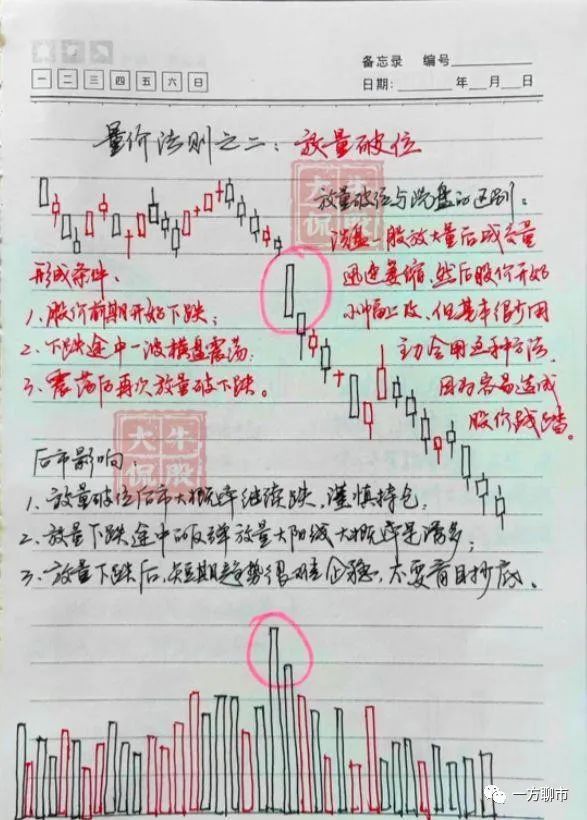 备忘录 编号
一 二 三 四 五 六 日
日期: 年 月 日
量价法则之二：放量破位
大牛侃股
放量破位与洗盘的区别：
洗盘一般放大量后成交量
迅速萎缩，然后股价开始
小幅上攻，但基本很少用
主力会用这种方法，
因为容易造成
股价践踏。
形成条件：
1、股价前期开始下跌；
2、下跌途中一波横盘震荡；
3、震荡后再次放量破下跌。
大牛侃股
后市影响：
1、放量破位后市大概率继续跌，谨慎持仓；
2、放量下跌途中的反弹放量大阳线大概率是诱多；
3、放量下跌后，短期趋势很难企稳，不要盲目抄底。
一方聊市